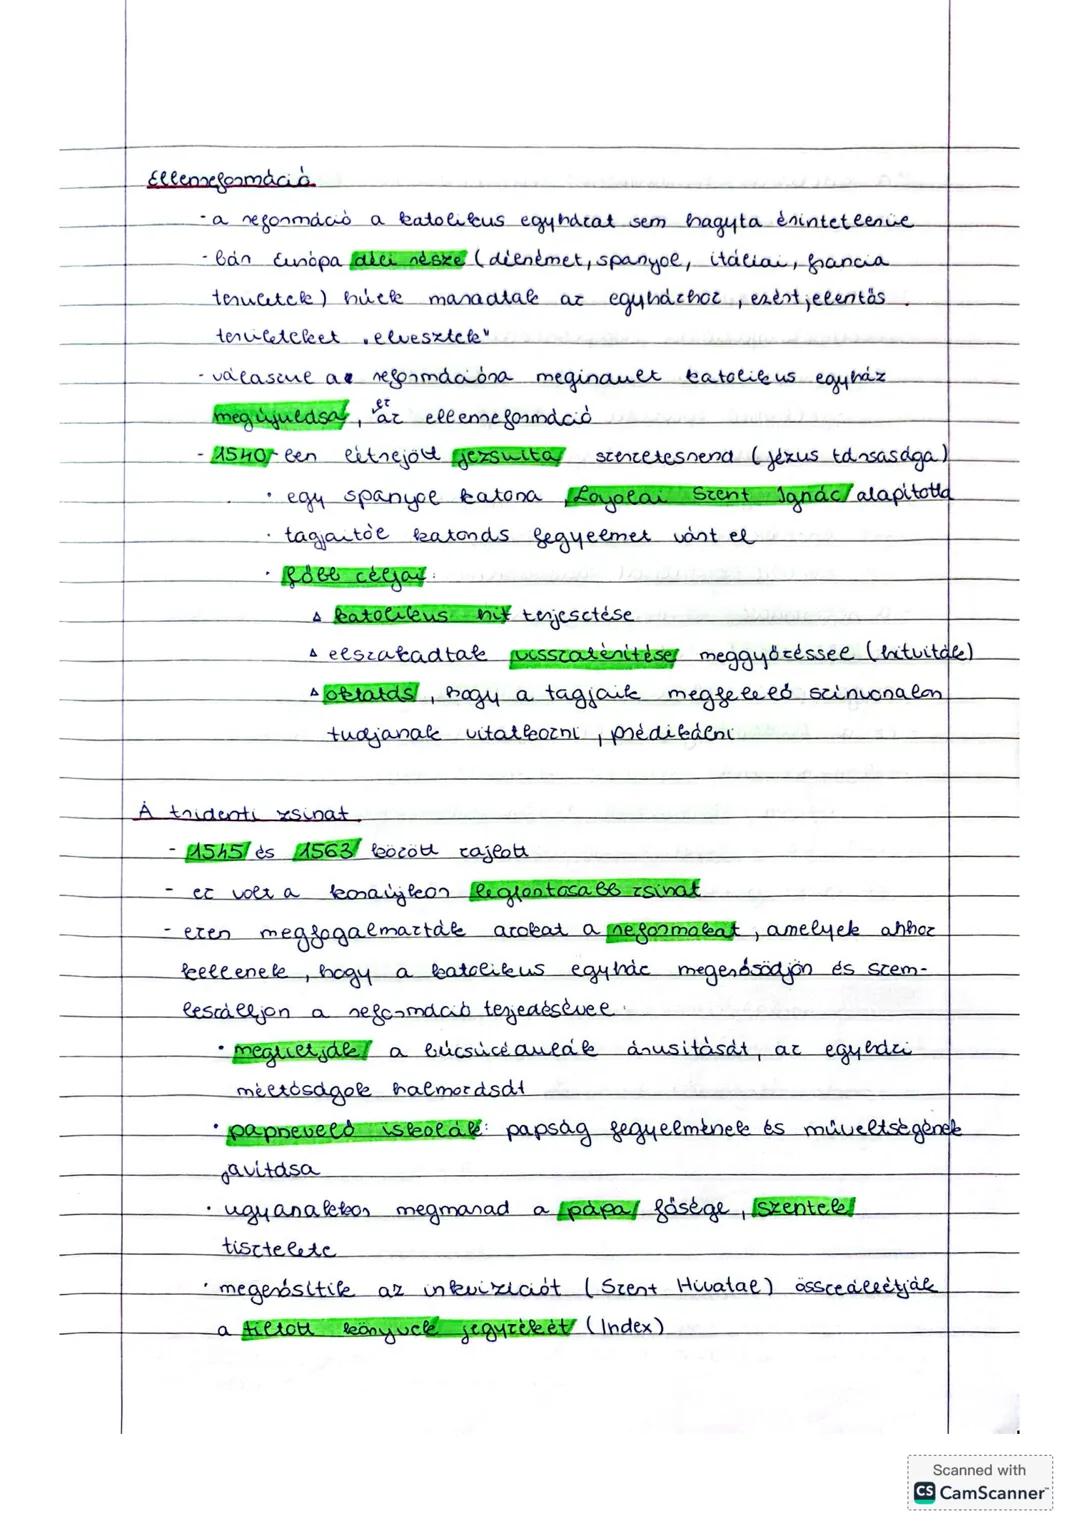 Ellenreformáció
- a reformáció a katolikus egyházat sem hagyta érintetlenül
- bár Európa déli része (délnémet, spanyol, itáliai, francia
területek) hűek maradtak az egyházhoz, ezért jelentős
területeket „elvesztek"
- válaszul a reformációra megindult katolikus egyház
megújulása, ez az ellenreformáció
- 1540-ben létrejött jezsuita szerzetesrend (Jézus társasága)
• egy spanyol katona Loyolai Szent Ignác alapította
• tagjaitól katonás fegyelmet várt el
• főbb céljai:
△ katolikus hit terjesztése
△ elszakadtak visszatérítése meggyőzéssel (hitviták)
△ oktatás, hogy a tagjaik megfelelő színvonalon
tudjanak vitatkozni, prédikálni
A tridenti zsinat
- 1545 és 1563 között zajlott
- ez volt a koraújkor legfontosabb zsinat
- ezen megfogalmazták azokat a reformokat, amelyek ahhoz
kellenek, hogy a katolikus egyház megerősödjön és szem-
beszálljon a reformáció terjedésével.
• megtiltják a búcsúcédulák árusítását, az egyházi
méltóságok halmozását
• papnevelő iskolák: papság fegyelmének és műveltségének
javítása
• ugyanakkor megmarad a pápa fősége, szentek
tisztelete
• megerősítik az inkvizíciót (Szent Hivatal) összeállítják
a tiltott könyvek jegyzékét (Index)
Scanned with
CS CamScanner